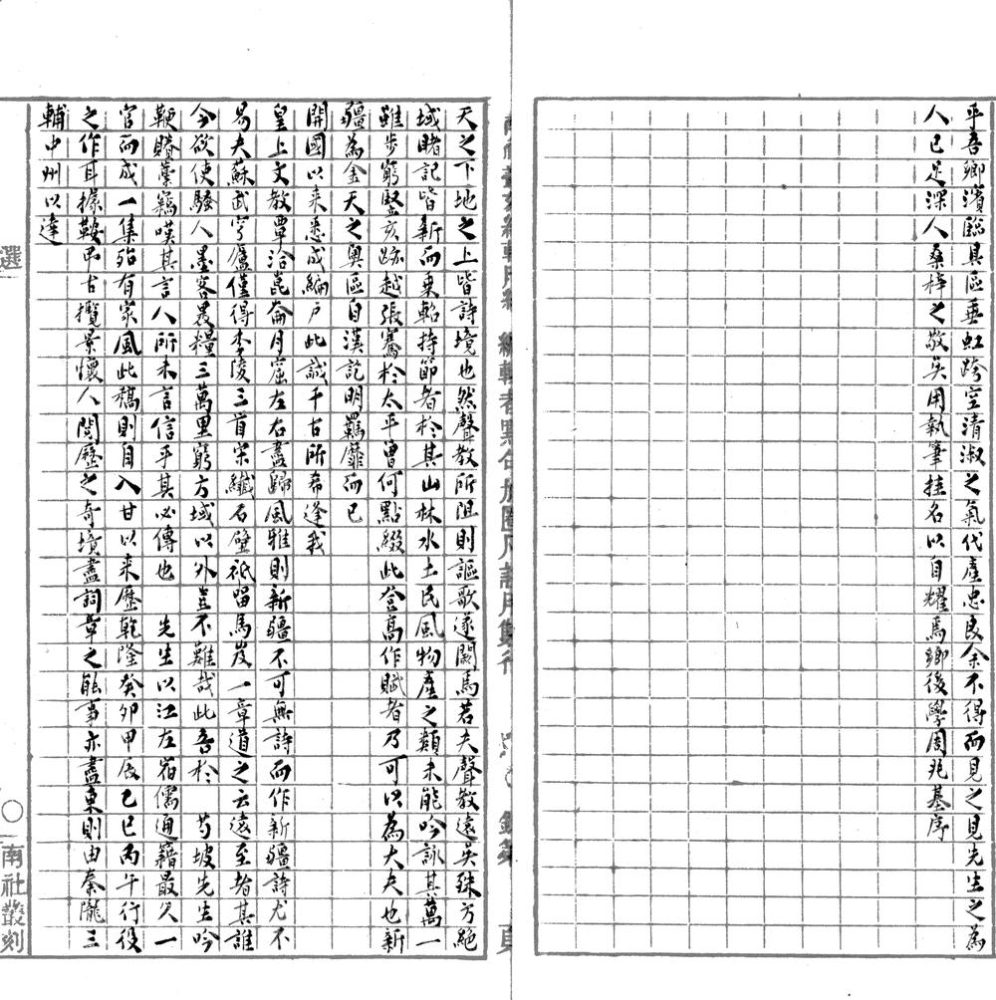 平吾鄉濱臨具區垂虹跨空清淑之氣代產忠良余不得而見之見先生之為
人已足深人桑梓之敬矣用執筆挂名以自耀焉鄉後學周兆基序
天之下地之上皆詩境也然聲教所阻則謳歌遂闕焉若夫聲教遠矣殊方絕
域睹記皆新而乘軺持節者於其山林水土民風物產之類未能吟詠其萬一
雖步窮豎亥跡越張騫於太平曾何點綴此登高作賦者乃可以為大夫也新
疆為金天之奧區自漢訖明羈縻而已
開國以來悉成編戶此誠千古所希逢我
皇上文教覃洽崑崙月窟左右盡歸風雅則新疆不可無詩而作新疆詩尤不
易夫蘇武穹廬僅得李陵三首宋纖石壁祇留馬岌一章道之云遠至者其誰
今欲使騷人墨客裹糧三萬里窮方域以外豈不難哉此吾於 芍坡先生吟
鞭賸藁竊嘆其言人所未言信乎其必傳也 先生以江左宿儒通籍最久一
官而成一集殆有家風此稿則自入甘以來歷乾隆癸卯甲辰乙巳丙午行役
之作耳據鞍弔古攬景懷人閱歷之奇境盡詞章之能事亦盡東則由秦隴三
輔中州以達
選
○
南社叢刻
頁